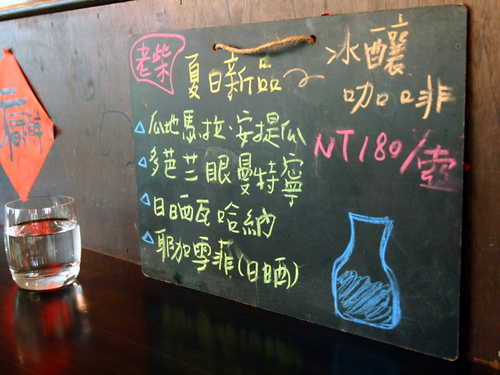 老柴
夏日新品
冰釀
咖啡
瓜地馬拉·安提瓜
多芭兰眼曼特寧
日晒瓦哈納
耶加雪菲(日晒)
NT180/壺